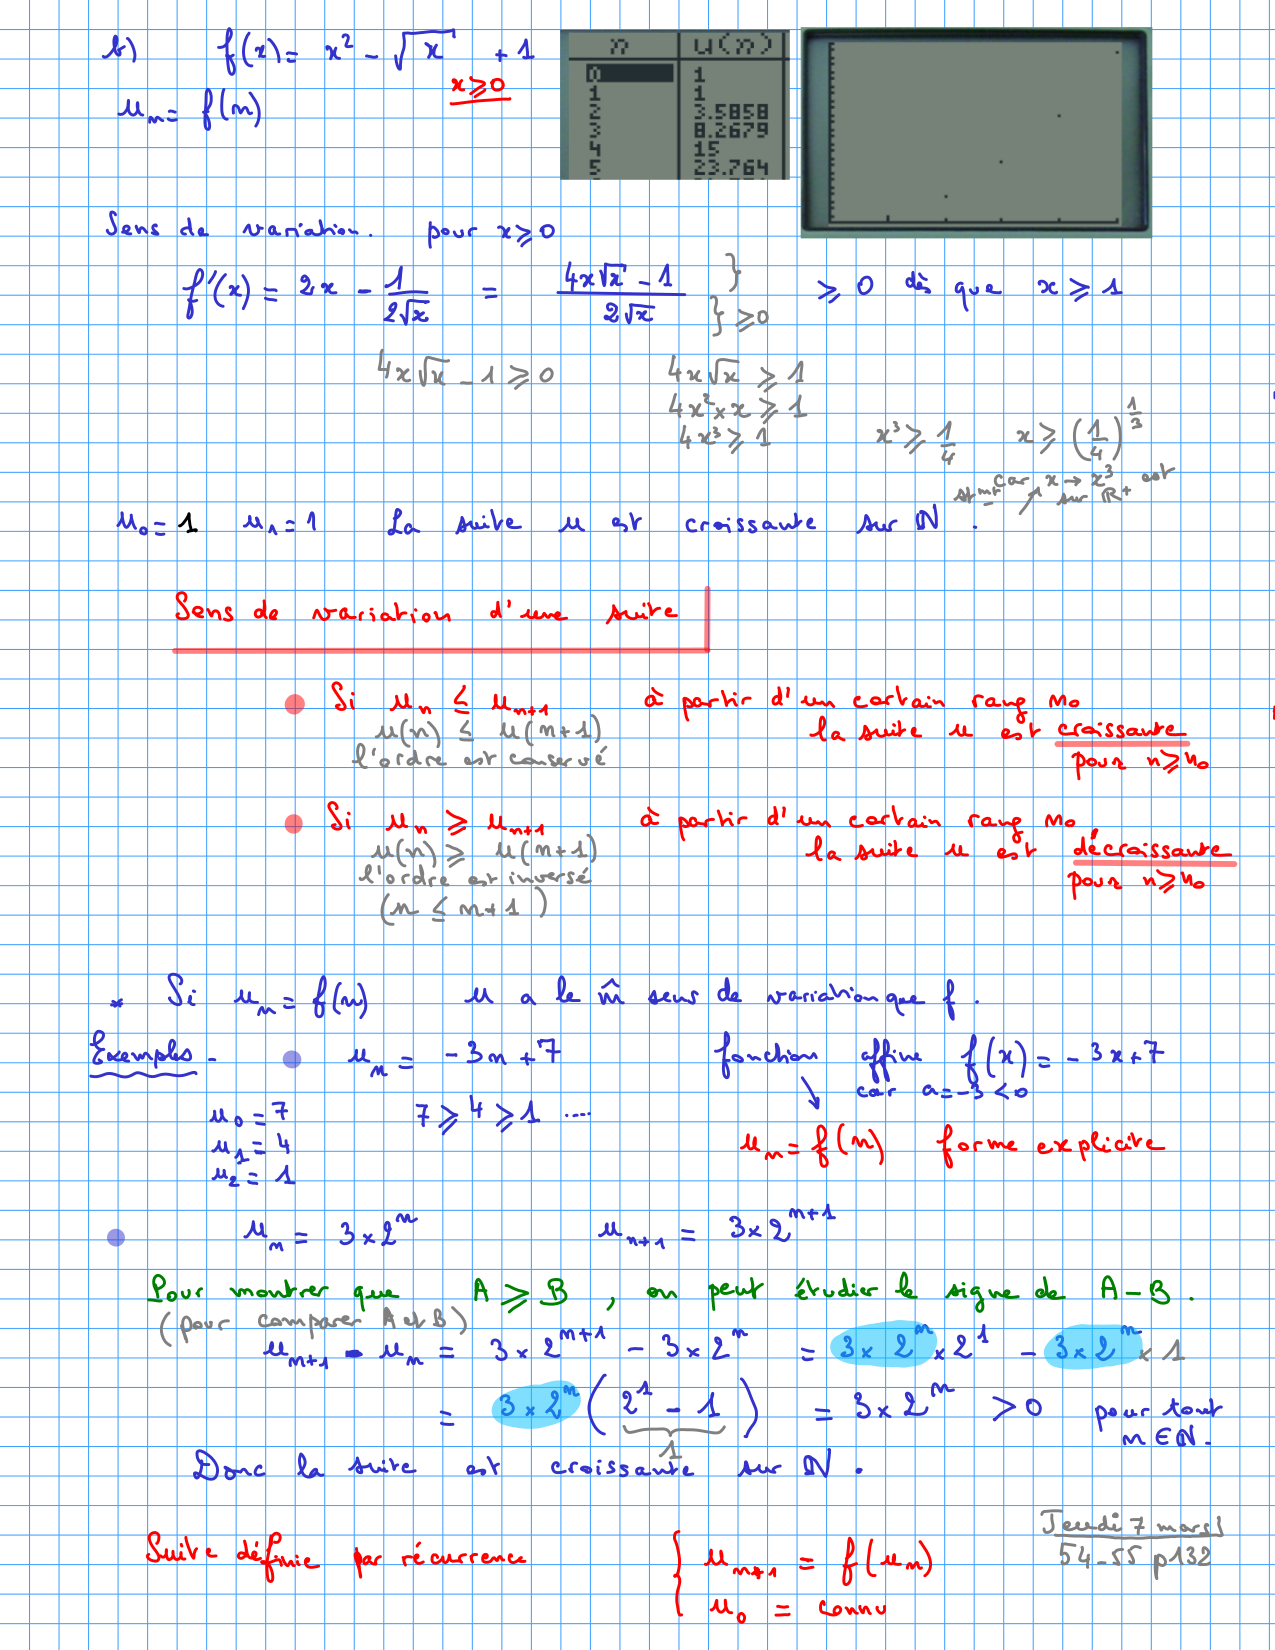 b) f(x) = x² - √x + 1
x ⩾ 0
uₙ = f(n)
n u(n)
0 1
1 1
2 3.5858
3 8.2679
4 15
5 23.764
Sens de variation. pour x ⩾ 0
f'(x) = 2x - 1/(2√x) = (4x√x - 1)/(2√x) } } ⩾ 0 ⩾ 0 dès que x ⩾ 1
4x√x - 1 ⩾ 0 4x√x ⩾ 1
4x² × x ⩾ 1
4x³ ⩾ 1 x³ ⩾ 1/4 x ⩾ (1/4)^(1/3)
car x → x³ est
stᵐᵗ ↗ sur ℝ+
u₀ = 1 u₁ = 1 La suite u est croissante sur ℕ.
Sens de variation d'une suite
Si uₙ ≤ uₙ₊₁ à partir d'un certain rang n₀
u(n) ≤ u(n+1) la suite u est croissante
l'ordre est conservé pour n ⩾ n₀
Si uₙ ⩾ uₙ₊₁ à partir d'un certain rang n₀
u(n) ⩾ u(n+1) la suite u est décroissante
l'ordre est inversé pour n ⩾ n₀
(n ≤ n+1)
* Si uₙ = f(n) u a le m̂ sens de variation que f.
Exemples - uₙ = -3n + 7 fonction affine f(x) = -3x + 7
car a = -3 < 0
u₀ = 7 7 ⩾ 4 ⩾ 1 ....
u₁ = 4 uₙ = f(n) forme explicite
u₂ = 1
uₙ = 3 × 2ⁿ uₙ₊₁ = 3 × 2ⁿ⁺¹
Pour montrer que A ⩾ B, on peut étudier le signe de A - B.
(pour comparer A et B)
uₙ₊₁ - uₙ = 3 × 2ⁿ⁺¹ - 3 × 2ⁿ = 3 × 2ⁿ × 2¹ - 3 × 2ⁿ × 1
= 3 × 2ⁿ (2¹ - 1) = 3 × 2ⁿ > 0 pour tout
1 n ∈ ℕ.
Donc la suite est croissante sur ℕ.
Jeudi 7 mars
Suite définie par récurrence { uₙ₊₁ = f(uₙ) 54-55 p132
u₀ = connu